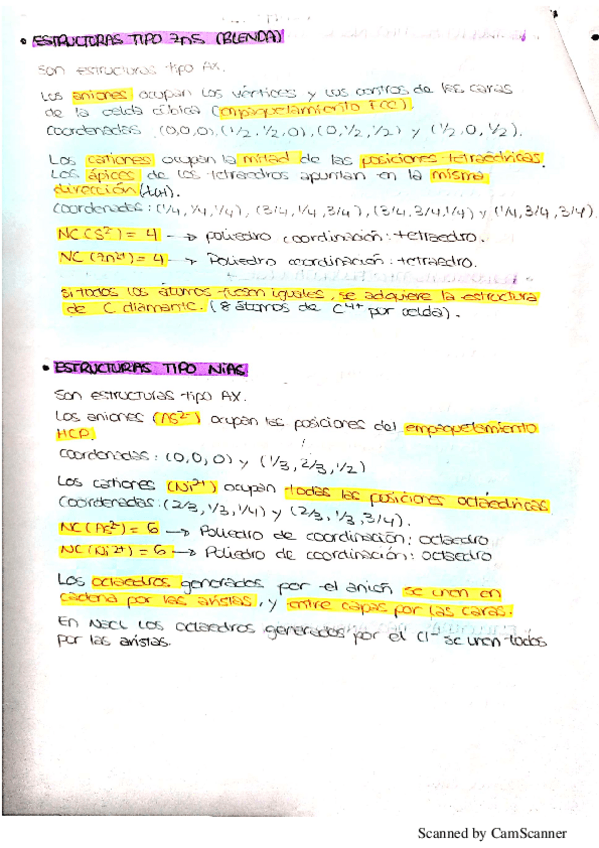 • ESTRUCTURAS TIPO ZnS (BLENDA)
Son estructuras tipo AX.
Los aniones ocupan los vértices y los centros de las caras
de la celda cúbica (empaquetamiento FCC).
Coordenadas (0,0,0), (1/2, 1/2, 0), (0, 1/2, 1/2) y (1/2, 0, 1/2).
Los cationes ocupan la mitad de las posiciones tetraédricas.
Los ápices de los tetraedros apuntan en la misma
dirección
Coordenadas: (1/4, 1/4, 1/4), (3/4, 1/4, 3/4), (3/4, 3/4, 1/4) y (1/4, 3/4, 3/4).
NC (S²⁻) = 4 → poliedro coordinación: tetraedro.
NC (Zn²⁺) = 4 → Poliedro coordinación: tetraedro.
Si todos los átomos fuesen iguales, se adquiere la estructura
de C diamante. (8 átomos de C⁴⁺ por celda).
• ESTRUCTURAS TIPO NiAs
Son estructuras tipo AX.
Los aniones (As²⁻) ocupan las posiciones del empaquetamiento
HCP.
Coordenadas: (0,0,0) y (1/3, 2/3, 1/2)
Los cationes (Ni²⁺) ocupan todas las posiciones octaédricas
Coordenadas: (2/3, 1/3, 1/4) y (2/3, 1/3, 3/4).
NC (As²⁻) = 6 → Poliedro de coordinación: octaedro
NC (Ni²⁺) = 6 → Poliedro de coordinación: octaedro
Los octaedros generados por el anión se unen en
cadena por las aristas, y entre capas por las caras.
En NaCl los octaedros generados por el Cl⁻ se unen todos
por las aristas.
Scanned by CamScanner